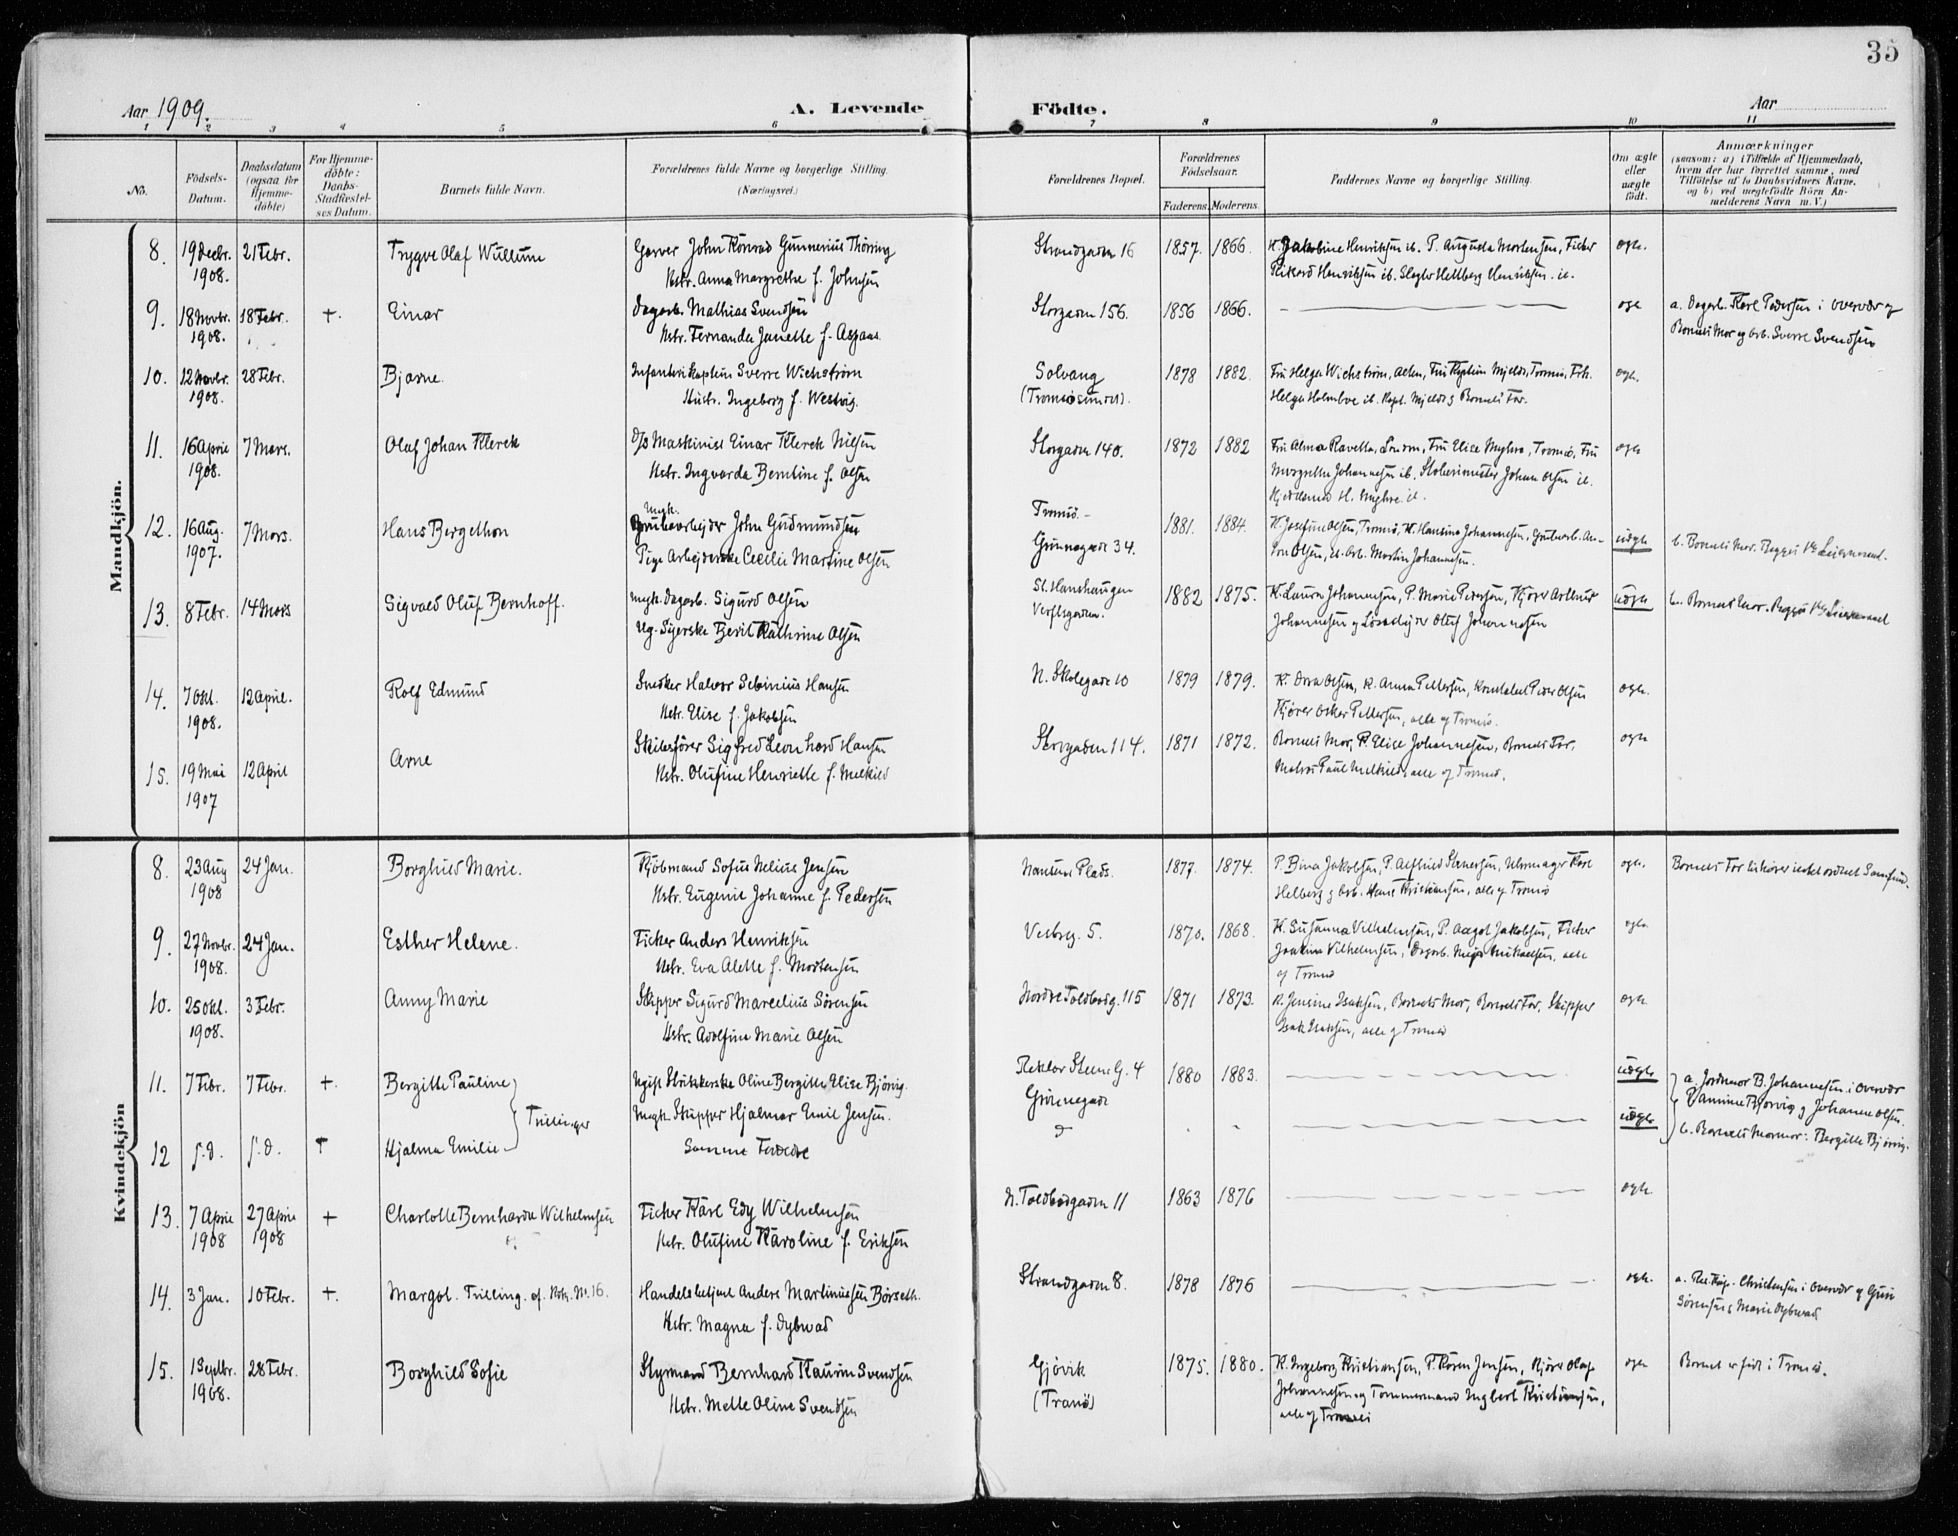 35
Aar 1909.
A. Levende Födte.
Aar
1 2 3 4 5 6 7 8 9 10 11
No.
Födsels-Datum.
Daabsdatum (ogsaa for Hjemme-döbte)
For Hjemme-döbte: Daabs-Stadfæstel-ses Datum.
Barnets fulde Navn.
Forældrenes fulde Navne og borgerlige Stilling. (Næringsvei.)
Forældrenes Bopæl.
Forældrenes Födselsaar.
Faderens. Moderens.
Faddernes Navne og borgerlige Stilling.
Om ægte eller uægte födt.
Anmærkninger
(saasom: a) i Tilfælde af Hjemmedaab,
hvem der har forrettet samme, med
Tilföielse af to Daabsvidners Navne,
og b) ved uægtefödte Börn An-
melderens Navn m. V.)
Mandkjön.
8. 19 Decbr. 21 Febr. Trygve Olaf Wullum Garver John Konrad Gunnerius Thöring Strandgaden 16 1857. 1866. K. Jakobine Henriksen ib. P. Augusta Mortensen, Fisker ægte.
1908. Hstr. Anna Margrethe f. Johnsen Rikard Henriksen ib. Slagter Hellberg Henriksen. ib.
9. 18 Novbr. 18 Febr. +. Einar Dagarb. Mathias Svendsen Storgaden 156. 1856 1866. ægte a. Dagarb. Karl Pedersen i Overvær af
1908. Hstr. Fernanda Janette f. Aspaas. Barnets Mor og Arb. Sverre Svendsen
10. 12 Novbr. 28 Febr. Bjarne. Infanterikaptein Sverre Wichström Solvang 1878 1882. Fru Helga Wichström, Alten, Fru Kaptein Mjelde, Tromsö, Frk. ægte.
1908. Hustr. Ingeborg f. Westvig. (Tromsösundet). Helga Holmboe ib. Kapt. Mjelde og Barnets Far.
11. 16 April 7 Mars. Olaf Johan Klerck D/S Maskinist Einar Klerck Nilsen Storgaden 140. 1872 1882 Fru Alma Ravetta, Fru Elise Myhre, Tromsö, Fru ægte
1908. Hstr. Ingvarda Berntine f. Olsen Margrethe Johannesen ib. Johan Olsen ib.
H. Myhre. ib.
12. 16 Aug. 7 Mars. Hans Bergethon Ungk. John Gudmundsen Tromsö. 1881. 1884. K. Josefine Olsen, Tromsö, K. Hansine Johannesen, An-
1907. Pige Arbejderske Cecilie Martine Olsen Grönnegade 34. ton Olsen, Arb. Martin Johannesen. uægte b. Barnets Mor.
13. 8 Febr. 14 Mars Sigvald Oluf Bernhoff. Ungk. Dagarb. Sigurd Olsen St. Hanshaugen 1882 1875. K. Laura Johannesen, P. Marie Pedersen, Kjörer Arthur uægte b. Barnets Mor.
Ug. Syerske Berit Kathrine Olsen Verftsgaden. Johannesen og Lösarbejder Oluf Johannesen
14. 7 Okt. 12 April. Rolf Edmund Snedker Halvor Sebinius Hansen N. Skolegade 10 1879 1879. K. Dora Olsen, K. Anna Pettersen, Konstabel Peder Olsen ægte.
1908. Hstr. Elise f. Jakobsen Kjörer Oskar Pettersen, alle af Tromsö.
15. 19 Mai 12 April Arne Skibsförer Sigfred Leonhard Hansen Storgaden 114. 1871 1872. Barnets Mor, P. Elise Johannesen, Barnets Far, ægte
1907 Hstr. Olufine Henriette f. Melkild Matros Paul Melkild, alle af Tromsö.
Kvindekjön
8. 23 Aug 24 Jan. Borghild Marie. Kjöbmand Sofus Nelius Jensen Nansens Plads. 1877. 1874. P. Bina Jakobsen, P. Alfhild Stenersen, Uhrmager Karl ægte. Barnets Far tilhörer intet ordnet Samfund.
1908 Hstr. Eugenie Johanne f. Pedersen Helberg og Arb. Hans Kristiansen, alle af Tromsö
9. 27 Novbr. 24 Jan. Esther Helene. Fisker Anders Henriksen Vestreg. 5. 1870. 1868. K. Susanna Vilhelmsen, P. Aagot Jakobsen, Fisker ægte.
1908. Hstr. Eva Alette f. Mortensen Joakim Vilhelmsen, Dagarb. Mikaelsen, alle
af Tromsö
10. 25 Okt. 3 Febr. Anny Marie Skipper Sigurd Marcelius Sörensen Nordre Toldbodg. 115 1871 1873. K. Jensine Isaksen, Barnets Mor, Barnets Far, Skipper ægte
1908. Hstr. Adolfine Marie Olsen Isak Isaksen, alle af Tromsö
11. 7 Febr. 7 Febr. +. Bergitte Pauline Ugift Strikkerske Oline Bergitte Elise Björvig. Rektor Steens G. 4 1880 1883. uægte a. Jordmor B. Johannesen i Overvær
Trillinger Ungk. Skipper Hjalmar Emil Jensen. Grönnegade af Vannine Bjorvig og Johanne Olsen.
12 s.d. s.d. + Hjalma Emilie Samme Forældre uægte b. Barnets Mormor: Bergitte Björvig.
13. 7 April 27 April + Charlotte Bernharda Wilhelmsen Fisker Karl Edv Wilhelmsen N. Toldbodgaden 11 1863 1876 ægte.
1908 1908 Hstr. Olufine Karoline f. Eriksen
14. 3 Jan. 10 Febr. +. Margot. Tvilling. cf. No. 16. Handelsbetjent Anders Martinusen Börseth. Strandgaden 8. 1878 1876 ægte. a. Res. Kap. Christensen i Overvær af Guri
Hstr. Magna f. Dybwad Sörensen & Marie Dybwad
15. 1 Septbr. 28 Febr. Borghild Sofie Styrmand Bernhard Kaurin Svendsen Gjövik 1875. 1880. K. Ingeborg Kristiansen, P. Karen Jensen, Kjörer Olaf ægte Barnet er födt i Tromsö.
1908. Hstr. Mette Oline Svendsen (Tranö) Johannesen og Tömmermand Ingbert Kristiansen,
alle af Tromsö